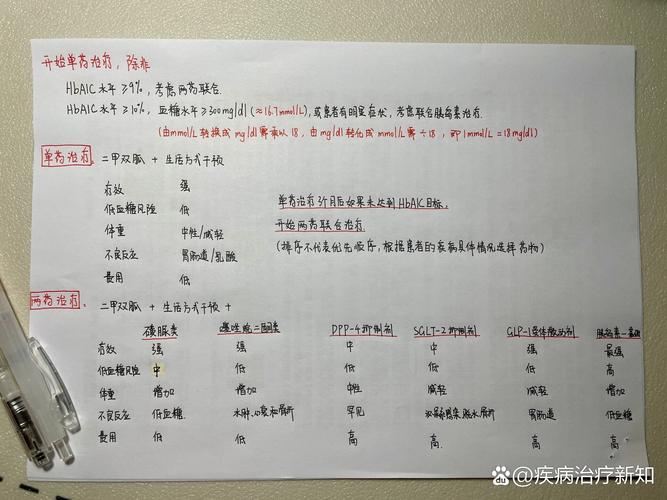 开始单药治疗,除非
HbA1C水平≥9%,考虑两药联合.
HbA1C水平≥10%,血糖水平≥300mg/dl(≈16.7mmol/L),或患者有明显症状,考虑联合胰岛素治疗.
(由mmol/L转换成mg/dl需乘以18,由mg/dl转化成mmol/L需÷18,即1mmol/L=18mg/dl)
单药治疗. 二甲双胍 + 生活方式干预
有效 强
低血糖风险 低 单药治疗3个月后如果未达到HbA1C目标,
体重 中性/减轻 开始两药联合治疗.
不良反应 胃肠道/乳酸 (排序不代表优先顺序,根据患者的疾病具体情况选择药物)
费用 低
两药治疗. 二甲双胍 + 生活方式干预 +
磺脲类 噻唑烷二酮类 DPP-4抑制剂 SGLT-2抑制剂 GLP-1受体激动剂 胰岛素-基础
有效 强 强 中 中 强 最强
低血糖风险 中 低 低 低 低 高
体重 增加 增加 中性 减轻 减轻 增加
不良反应 低血糖. 水肿,心衰和骨折 罕见 泌尿感染,脱水,骨折 胃肠道 低血糖
费用 低 低 高 高. 高 高
Bai 疾病治疗新知
@疾病治疗新知